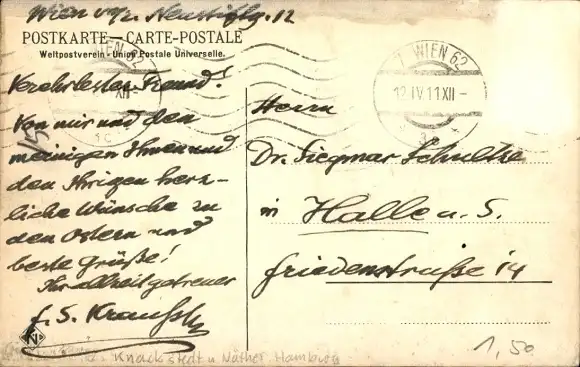 Wien VII/2. Neustiftg. 12
POSTKARTE — CARTE-POSTALE
Weltpostverein - Union Postale Universelle.
WIEN 62
XII
1c
7 WIEN 62
12.IV.11 XII -
Verehrtester Freund!
Von mir und den
meinigen Ihnen und
den Ihrigen herz-
liche Wünsche zu
den Ostern und
beste Grüße!
Ihr allzeit getreuer
F. S.
Herrn
Dr. Siegmar Schultze
in Halle a. S.
Friedenstraße 14
KN
Knackstedt u Näther. Hamburg
1,50